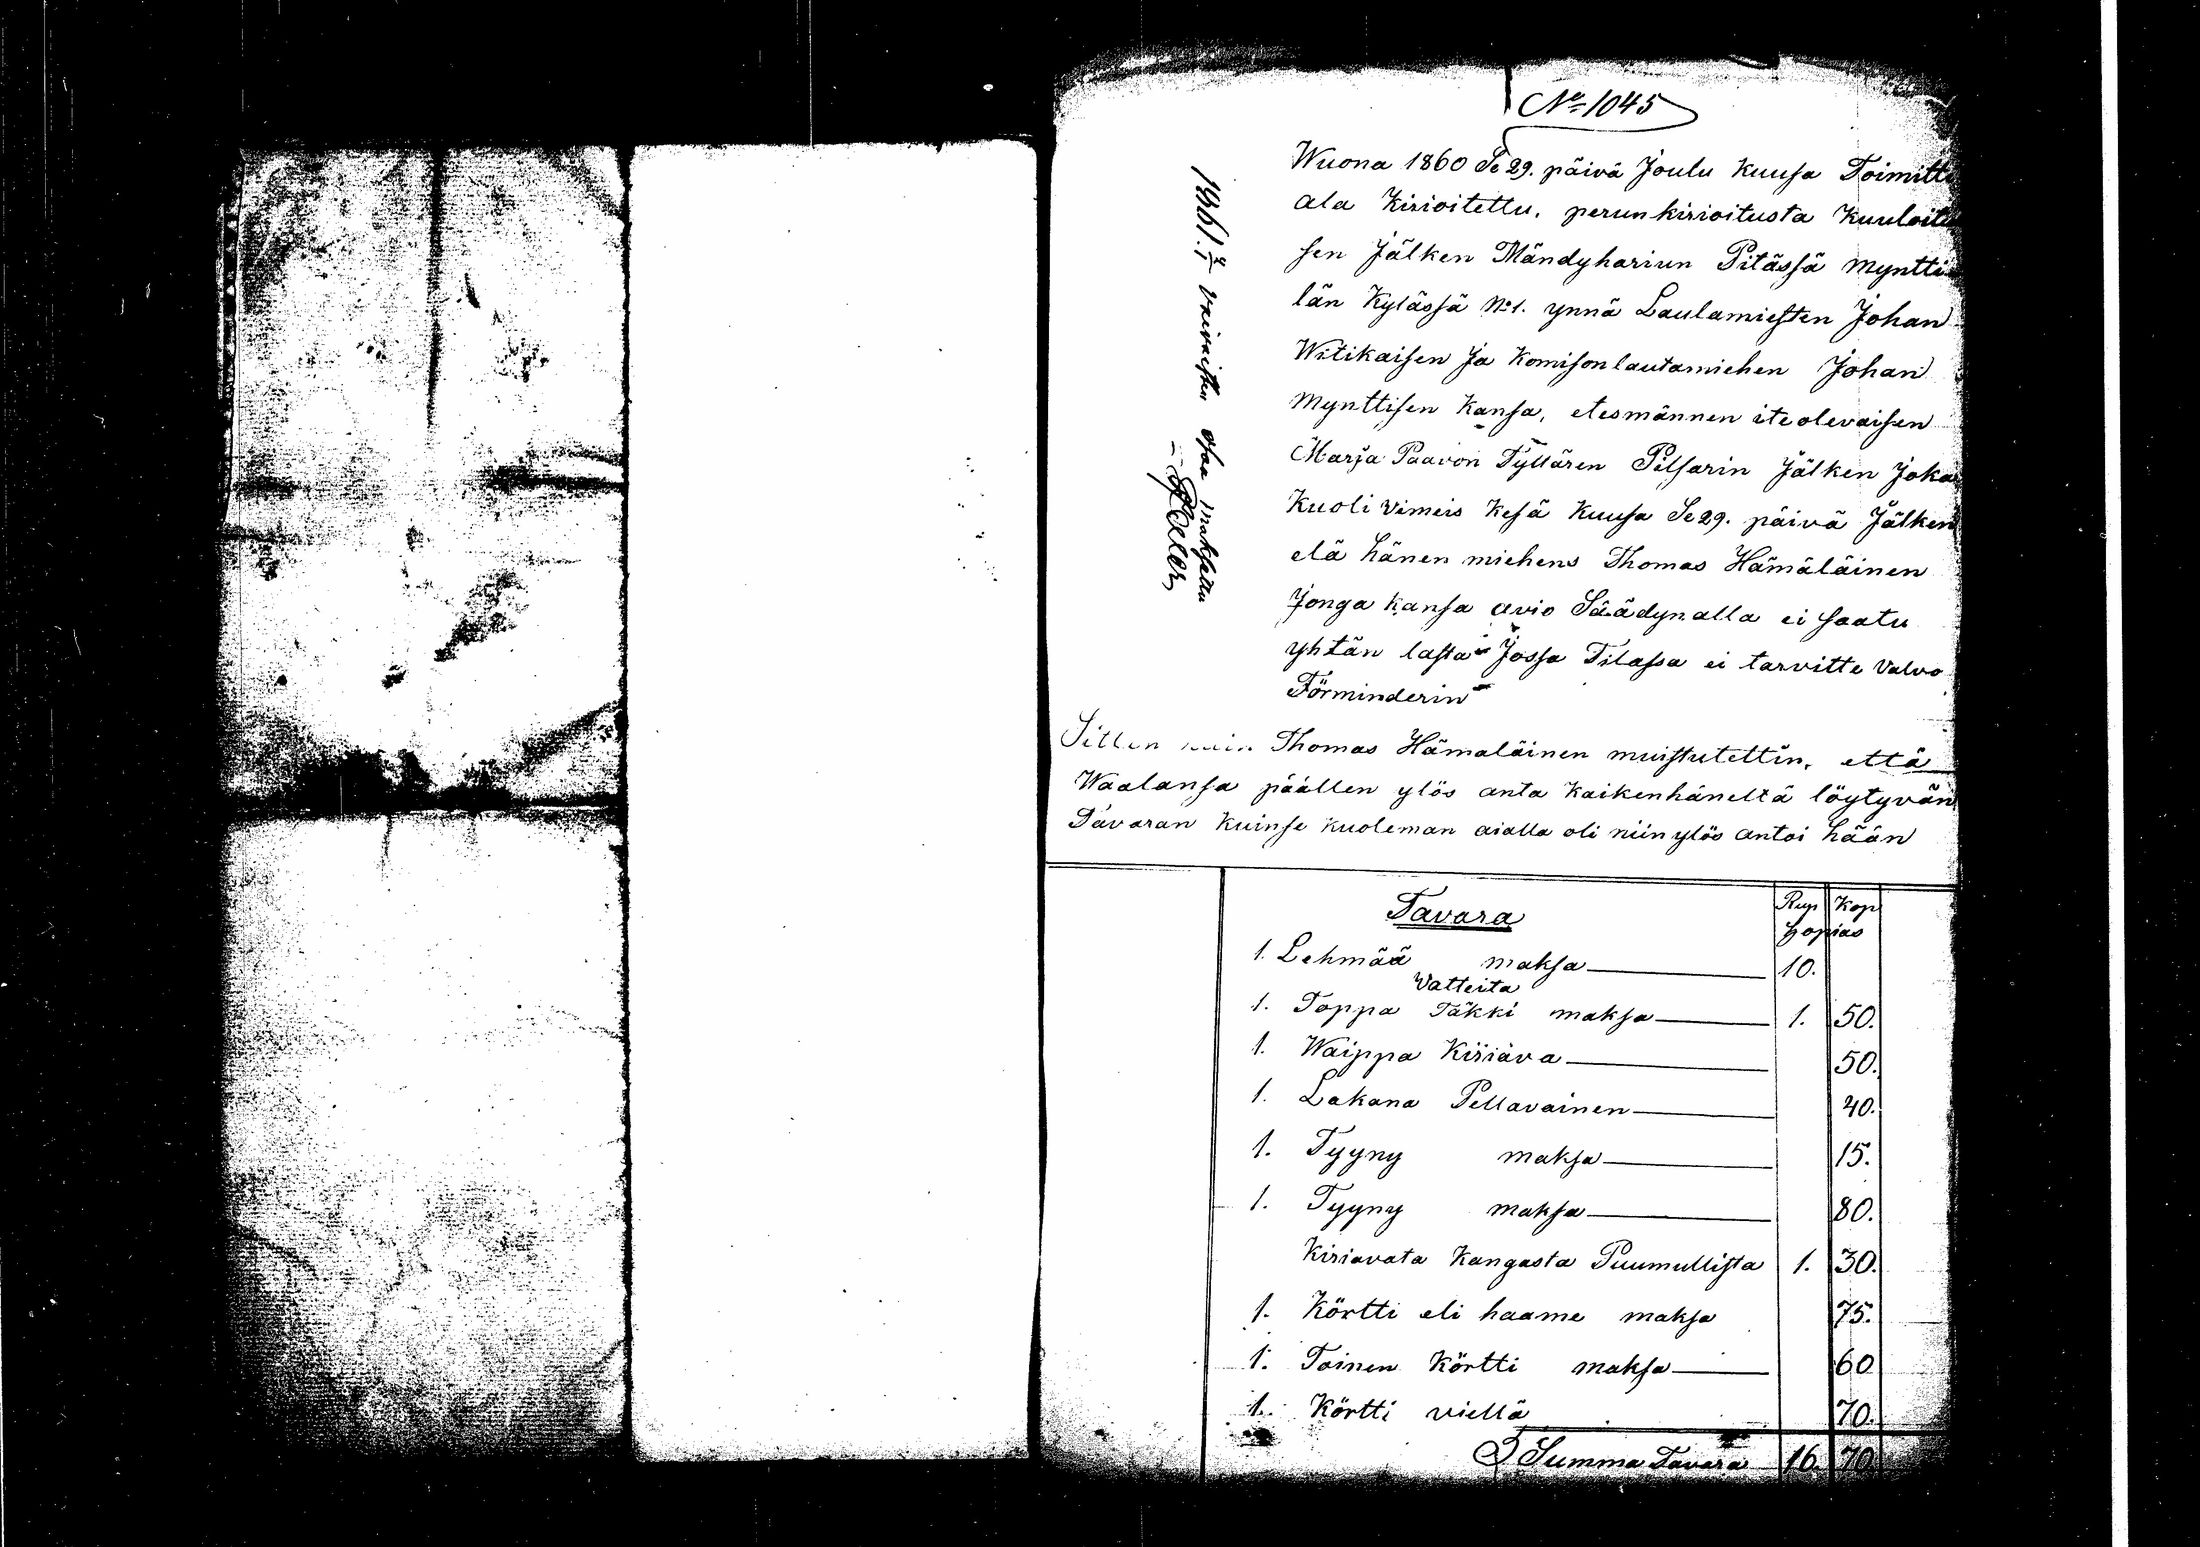 No 1045
Wuona 1860 Se 29. päivä Joulu Kuusa Toimitti
ala Kirioitettu, perunkirioitusta Kuuloitu
sen Jälken Mändyhariun Pitässä Myntti
län Kylässä No 1. ynnä Laulamiesten Johan
Witikaisen Ja Komisonlautamiehen Johan
Mynttisen Kansa, etesmännen iteolevaisen
Marja Paavon Tyttären Pilsarin Jälken Joka
Kuoli Vimeis Kesä Kuusa Se 29. päivä Jälken
elä hänen miehens Thomas Hämäläinen
Jonga Kansa avio Säädyn alla ei saatu
yhtän lasta Jossa Tilassa ei tarvitte Valvo
Förminderin
Sitten kuin Thomas Hämäläinen muistutettin, että
Waalansa päällen ylös anta Kaikenhäneltä löytyvän
Tavaran Kuinse Kuoleman aialla oli niin ylös antoi hään
1861. vaivaistu osa maksettu
Tavara Rup Kop
hopias
1. Lehmää maksa 10.
Vatteita
1. Toppa Täkki maksa 1. 50.
1. Waippa Kiriäva 50.
1. Lakana Pellavainen 40.
1. Tyyny maksa 15.
1. Tyyny maksa 80.
Kiriavata Kangasta Puumullista 1. 30.
1. Körtti eli haame maksa 75.
1. Toinen Körtti maksa 60
1. Körtti viellä 70.
Summa Tavara 16. 70